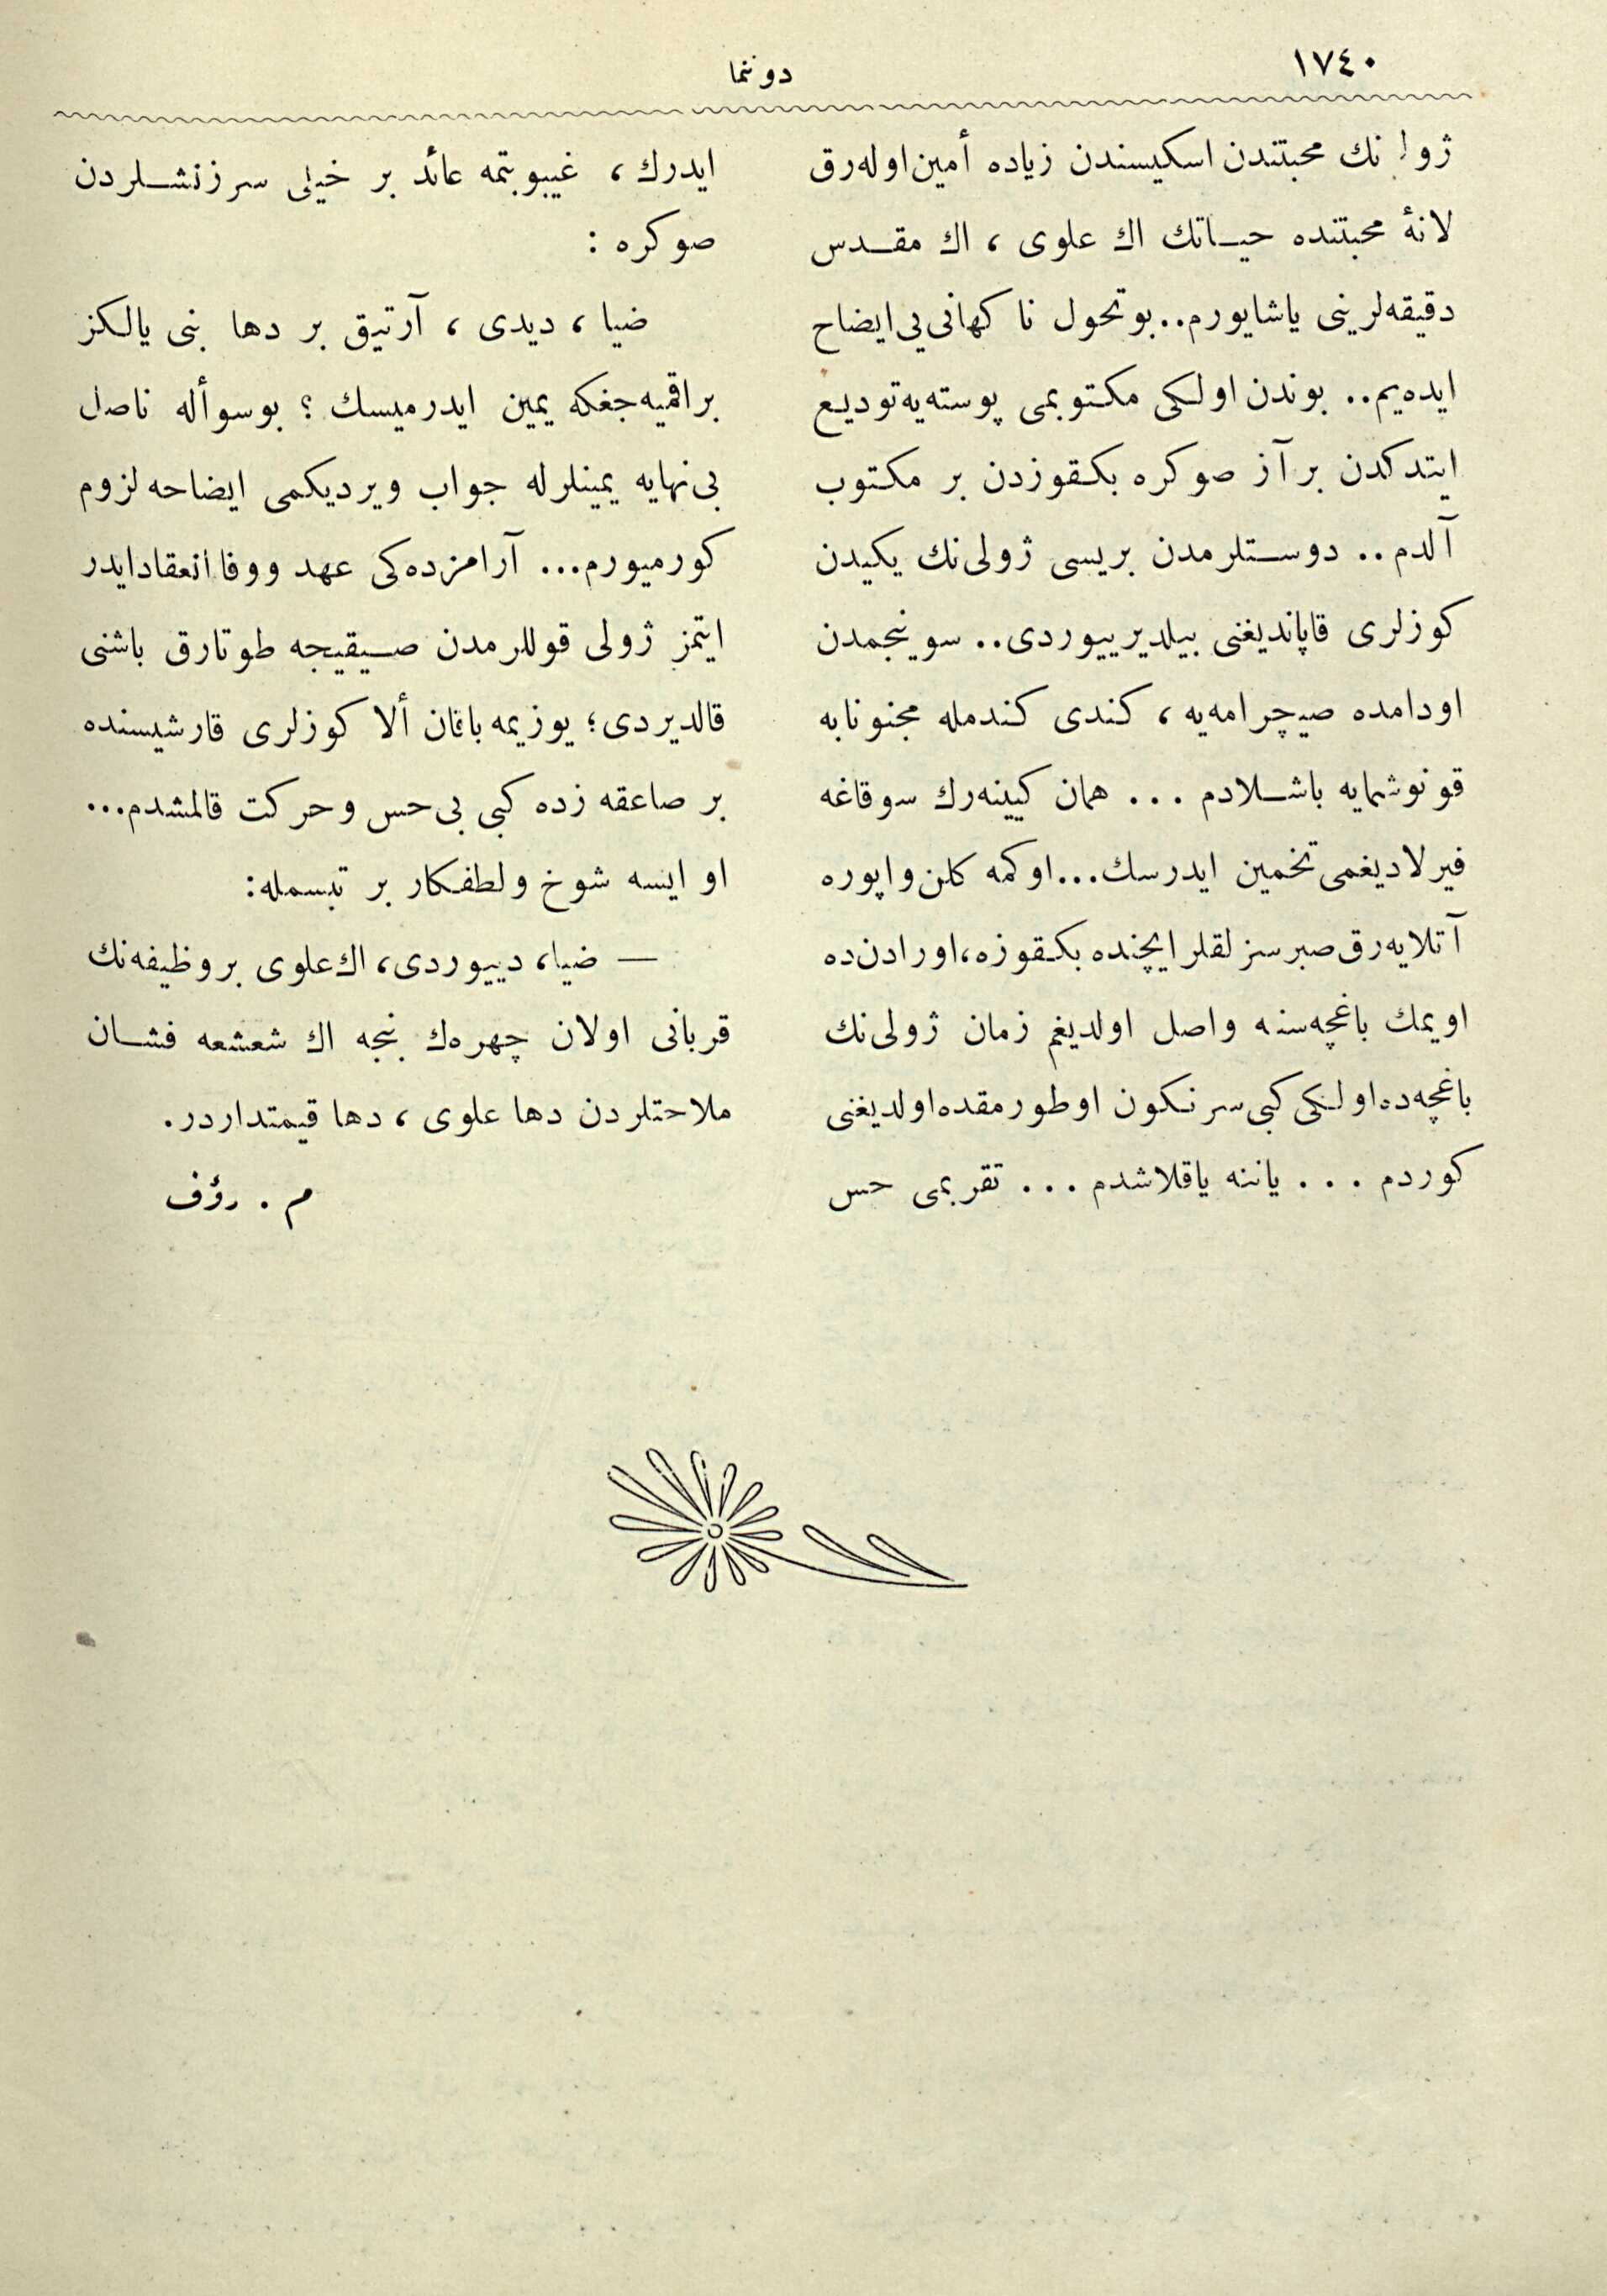 ١٧٤٠
دوننما
ژولی نك محبتندن اسكیسندن زیاده أمین اوله‌رق
لانۀ محبتنده حیاتك اك علوی ، اك مقدس
دقیقه‌لرینی یاشایورم.. بو تحول نا كهانی یی ایضاح
ایده‌یم.. بوندن اولكی مكتوبمی پوسته‌یه تودیع
ایتدكدن بر آز صوكره بكقوزدن بر مكتوب
آلدم.. دوستلرمدن بریسی ژولی نك یكیدن
كوزلری قاپاندیغنی بیلدیرییوردی.. سوینجمدن
اودامده صیچرامه‌یه ، كندی كندمله مجنونابه
قونوشمایه باشلادم ... همان كیینه‌رك سوقاغه
فیرلادیغمی تخمین ایدرسك... اوكمه كلن واپوره
آتلایه‌رق صبرسزلقلر ایچنده بكقوزه، اورادن ده
اویمك باغچه‌سنه واصل اولدیغم زمان ژولی نك
باغچه‌ده اولكی كبی سرنكون اوطورمقده اولدیغنی
كوردم ... یاننه یاقلاشدم ... تقربمی حس
ایدرك ، غیبوبتمه عائد بر خیلی سرزنشلردن
صوكره :
ضیا ، دیدی ، آرتیق بر دها بنی یالكز
براقمیه‌جغكه یمین ایدرمیسك ؟ بو سوأله ناصل
بی نهایه یمینلرله جواب ویردیكمی ایضاحه لزوم
كورمیورم... آرامزده‌كی عهد ووفا انعقاد ایدر
ایتمز ژولی قوللرمدن صیقیجه طوتارق باشنی
قالدیردی؛ یوزیمه باقان ألا كوزلری قارشیسنده
بر صاعقه زده كبی بی حس وحركت قالمشدم...
او ایسه شوخ ولطفكار بر تبسمله:
— ضیا، دییوردی، اك علوی بر وظیفه‌نك
قربانی اولان چهره‌ك بنجه اك شعشعه فشان
ملاحتلردن دها علوی ، دها قیمتداردر.
م . رؤف